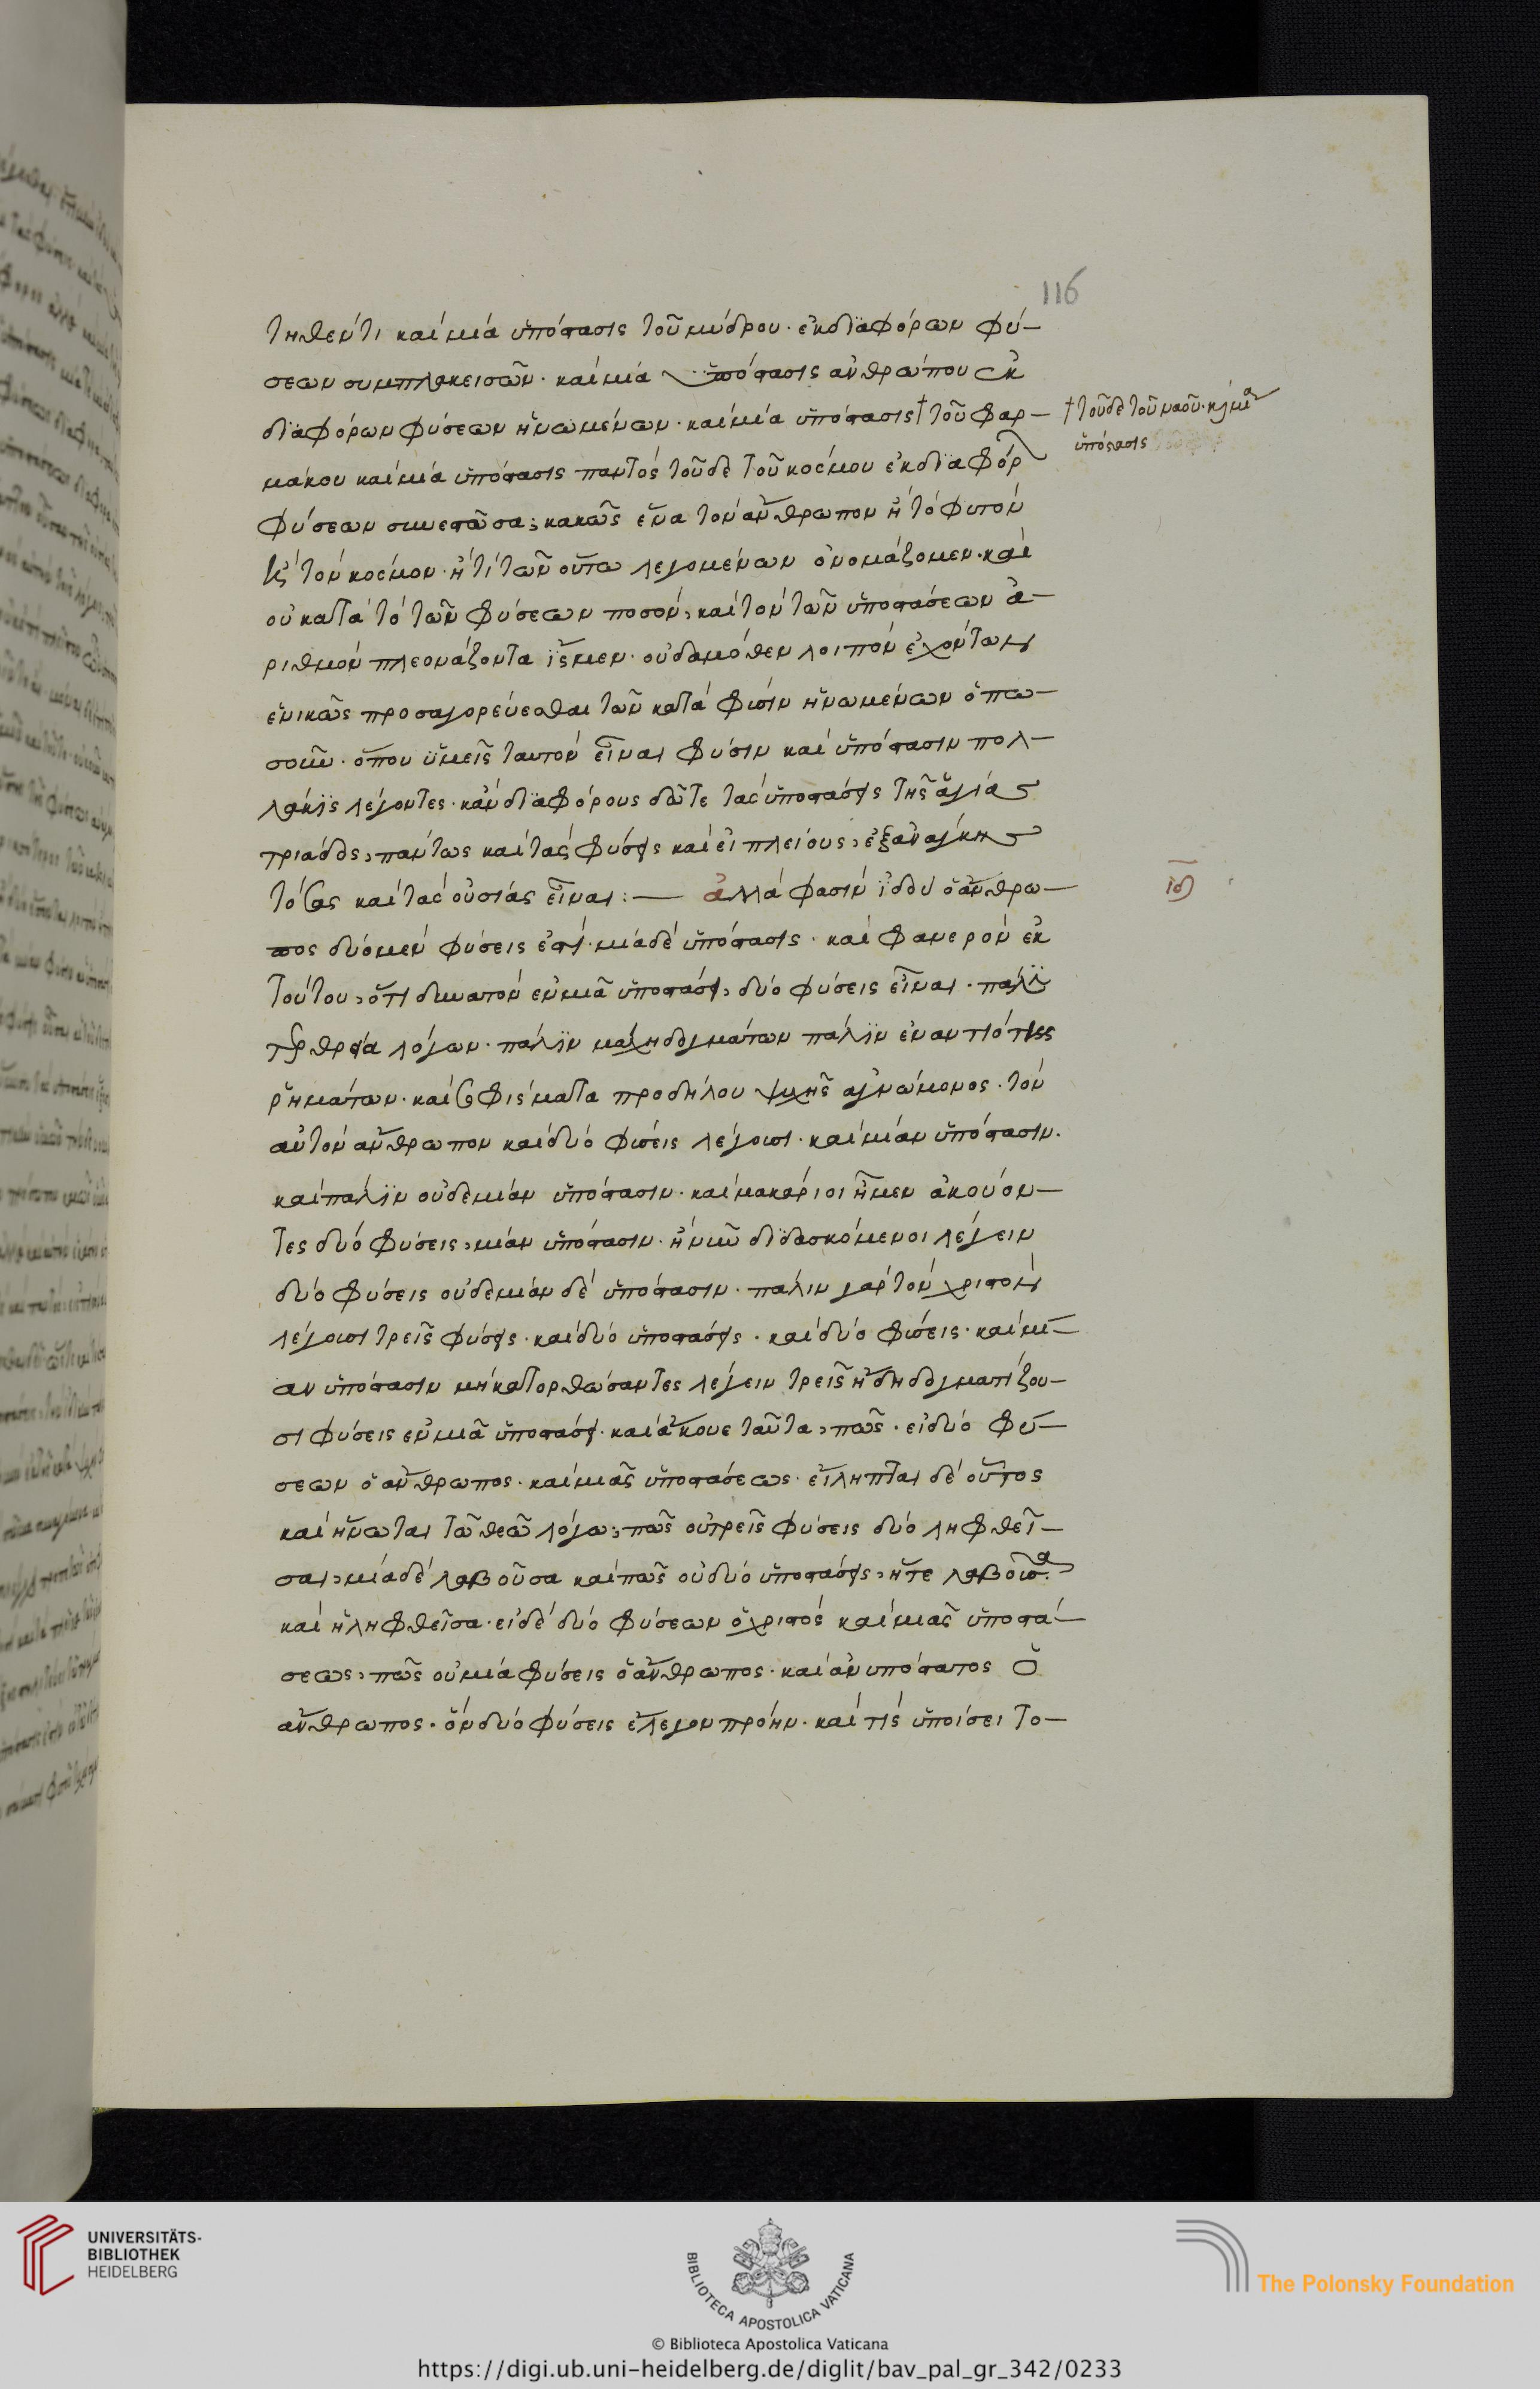 116
τηθέντι καὶ μία ὑπόστασις τοῦ μύδρου · ἐκ διαφόρων φύ-
σεων συμπλακεισῶν · καὶ μία ὑπόστασις ἀνθρώπου ἐκ
διαφόρων φύσεων ἡνωμένων · καὶ μία ὑπόστασις † τοῦ φαρ-
† τοῦδε τοῦ ναοῦ · κὶ μία
ὑπόστασις
μάκου καὶ μία ὑπόστασις παντὸς τοῦδε τοῦ κόσμου ἐκ διαφόρ
φύσεων συνεστῶσα; κακῶς ἕνα τὸν ἄνθρωπον ἢ τὸ φυτὸν
κὶ τὸν κόσμον · ἤ τι τῶν οὕτω λεγομένων ὀνομάζομεν · καὶ
οὐ κατὰ τὸ τῶν φύσεων ποσὸν, καὶ τὸν τῶν ὑποστάσεων ἀ-
ριθμὸν πλεονάζοντα ἴσμεν · οὐδαμόθεν λοιπὸν ἐχόντων
ἑνικῶς προσαγορεύεσθαι τῶν κατὰ φύσιν ἡνωμένων ὁπω-
σοῦν · ὅπου ὑμεῖς ταυτὸν εἶναι φύσιν καὶ ὑπόστασιν πολ-
λάκις λέγοντες · κἂν διαφόρους δῶτε τὰς ὑποστάσεις τῆς ἁγίας
τριάδος, πάντως καὶ τὰς φύσεις καὶ εἰ πλείους, ἐξ ἀνάγκης
τόσας καὶ τὰς οὐσίας εἶναι : — ἀλλά φασιν ἰδοὺ ὁ ἄνθρω-
ιδ
πος δύο μὲν φύσεις ἐστὶ · μία δὲ ὑπόστασις · καὶ φανερὸν ἐκ
τούτου, ὅτι δυνατὸν ἐν μιᾷ ὑποστάσει, δύο φύσεις εἶναι · πάλιν
τερθρεία λόγων · πάλιν μάχη δογμάτων πάλιν ἐναντιότητες
ῥημάτων · καὶ σοφίσματα προδήλου ψυχῆς ἀγνώμονος · τὸν
αὐτὸν ἄνθρωπον καὶ δύο φύσεις λέγουσι · καὶ μίαν ὑπόστασιν.
καὶ πάλιν οὐδεμίαν ὑπόστασιν · καὶ μακάριοι ἦμεν ἀκούον-
τες δύο φύσεις, μίαν ὑπόστασιν · ἢ νῦν διδασκόμενοι λέγειν
δύο φύσεις οὐδεμίαν δὲ ὑπόστασιν · πάλιν γὰρ τὸν χριστὸν
λέγουσι τρεῖς φύσεις · καὶ δύο ὑποστάσεις · καὶ δύο φύσεις · καὶ μί-
αν ὑπόστασιν μὴ κατορθώσαντες λέγειν τρεῖς ἤδη δογματίζου-
σι φύσεις ἐν μιᾷ ὑποστάσει · καὶ ἄκουε ταῦτα, πῶς · εἰ δύο φύ-
σεων ὁ ἄνθρωπος · καὶ μιᾶς ὑποστάσεως · εἴληπται δὲ οὗτος
καὶ ἥνωται τῷ θεῷ λόγῳ, πῶς οὐ τρεῖς φύσεις δύο ληφθεῖ-
σαι, μία δὲ λαβοῦσα καὶ πῶς οὐ δύο ὑποστάσεις, ἥτε λαβοῦσα ·
καὶ ἡ ληφθεῖσα · εἰ δὲ δύο φύσεων ὁ χριστὸς καὶ μιᾶς ὑποστά-
σεως, πῶς οὐ μία φύσεις ὁ ἄνθρωπος · καὶ ἀνυπόστατος ὁ
ἄνθρωπος · ὃν δύο φύσεις ἔλεγον πρόην · καὶ τίς ὑποίσει το-
UNIVERSITÄTS-
BIBLIOTHEK
HEIDELBERG
BIBLIOTECA APOSTOLICA VATICANA
© Biblioteca Apostolica Vaticana
The Polonsky Foundation
https://digi.ub.uni-heidelberg.de/diglit/bav_pal_gr_342/0233